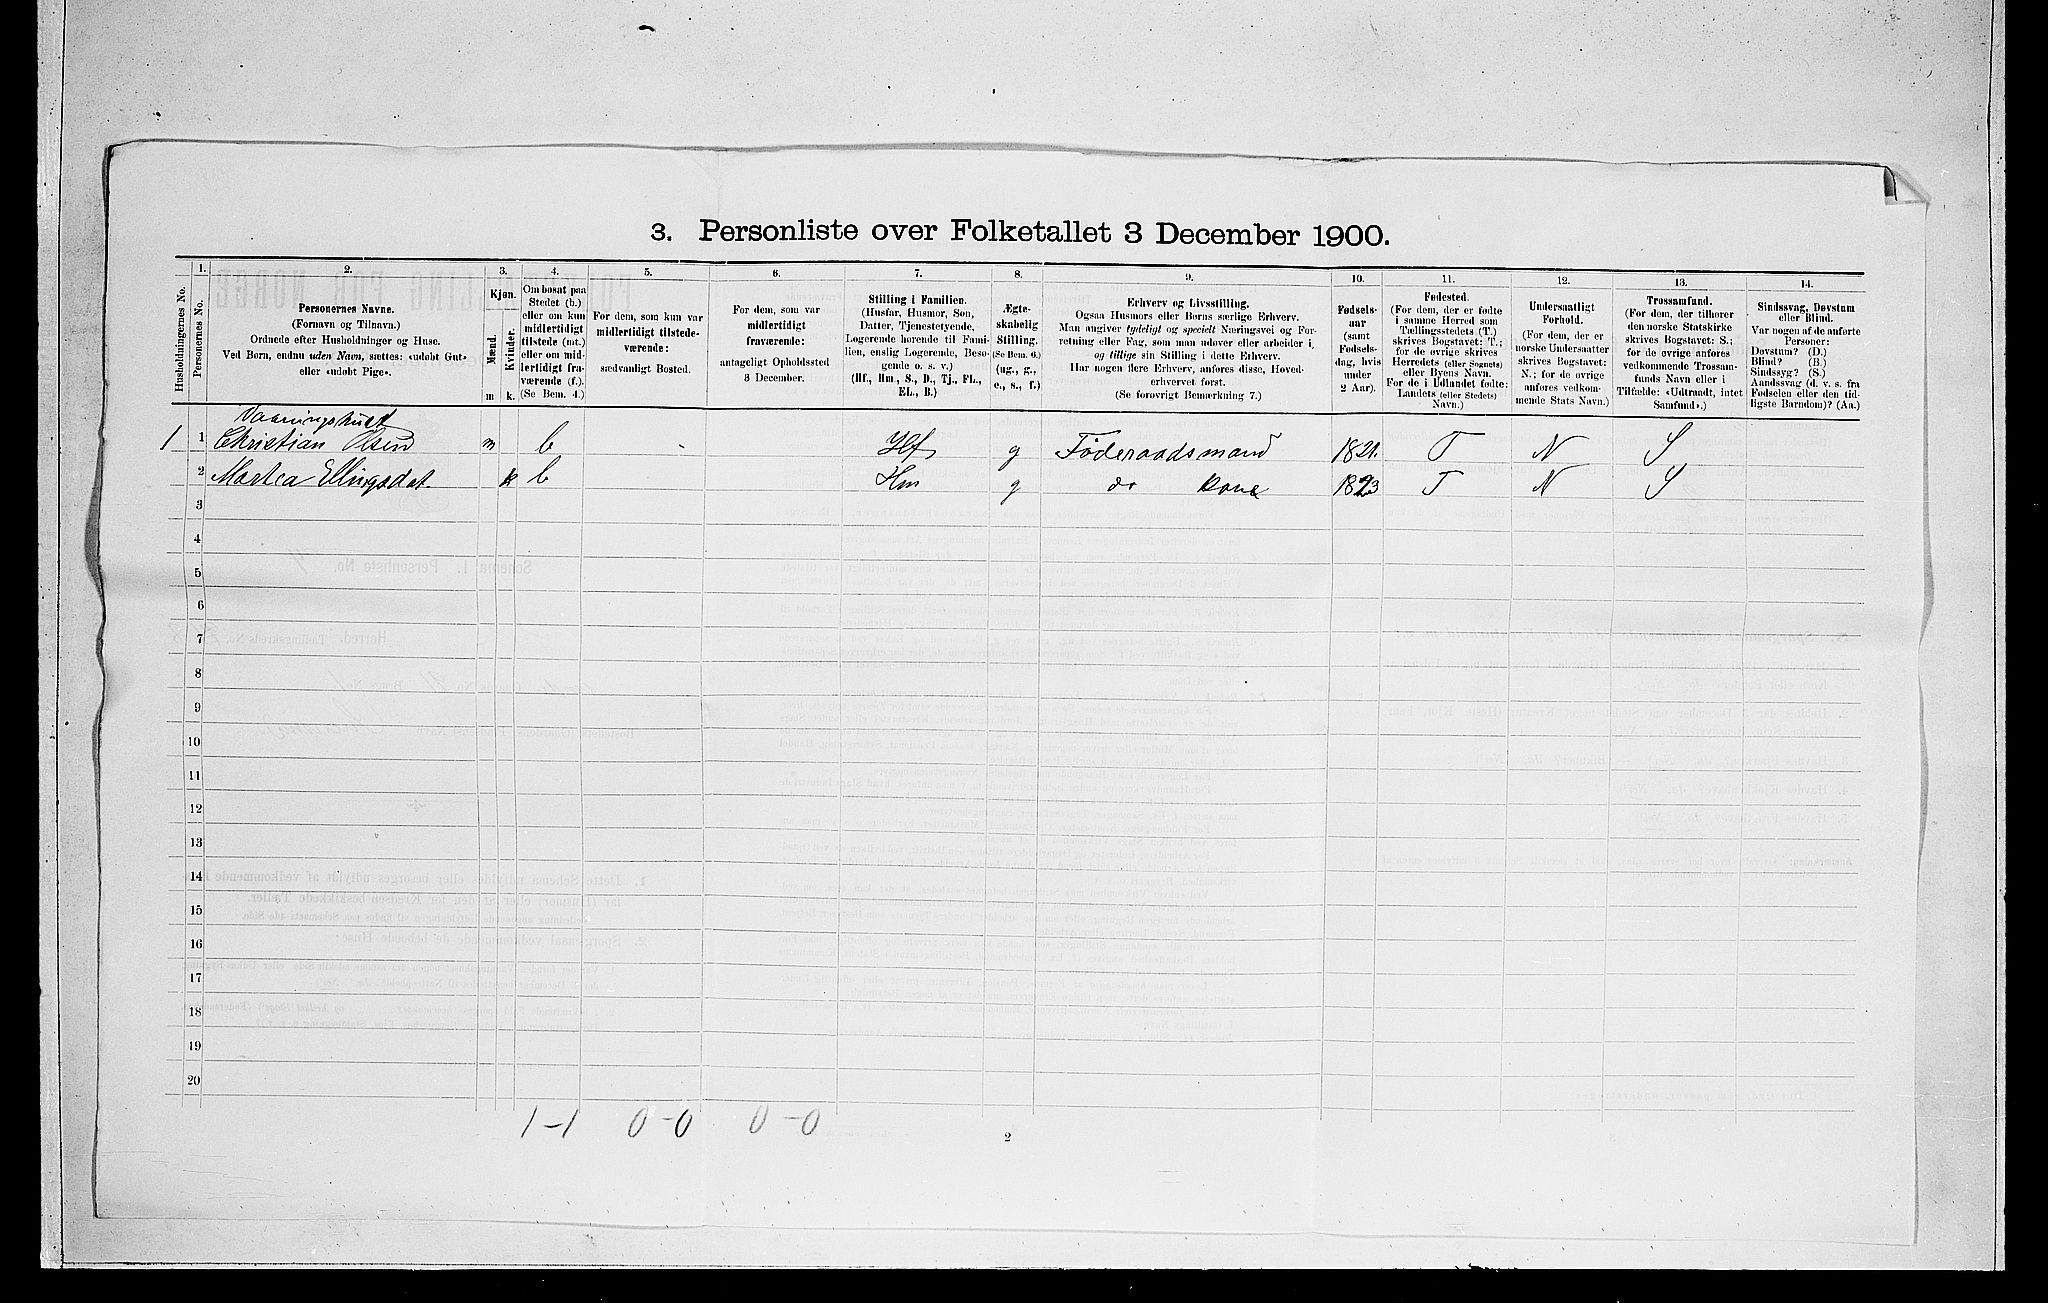 3. Personliste over Folketallet 3 December 1900.
Husholdningernes No.
1.
Personernes No.
2.
Personernes Navne.
(Fornavn og Tilnavn.)
Ordnede efter Husholdninger og Huse.
Ved Børn, endnu uden Navn, sættes: «udøbt Gut»
eller «udøbt Pige».
3.
Kjøn.
Mænd.
Kvinder.
m
k.
4.
Om bosat paa
Stedet (b.)
eller om kun
midlertidigt
tilstede (mt.)
eller om mid-
lertidigt fra-
værende (f.).
(Se Bem. 4.)
5.
For dem, som kun var
midlertidigt tilstede-
værende:
sædvanligt Bosted.
6.
For dem, som var
midlertidigt
fraværende:
antageligt Opholdssted
3 December.
7.
Stilling i Familien.
(Husfar, Husmor, Søn,
Datter, Tjenestetyende,
Logerende hørende til Fami-
lien, enslig Logerende, Besø-
gende o. s. v.)
(Hf., Hm., S., D., Tj., FL.,
EL., B.)
8.
Ægte-
skabelig
Stilling.
(Se Bem. 6.)
(ug., g.,
e., s., f.)
9.
Erhverv og Livsstilling.
Ogsaa Husmors eller Børns særlige Erhverv.
Man angiver tydeligt og specielt Næringsvei og For-
retning eller Fag, som man udøver eller arbeider i,
og tillige sin Stilling i dette Erhverv.
Har nogen flere Erhverv, anføres disse, Hoved-
erhvervet først.
(Se forøvrigt Bemærkning 7.)
10.
Fødsels-
aar
(samt
Fødsels-
dag, hvis
under
2 Aar).
11.
Fødested.
(For dem, der er fødte
i samme Herred som
Tællingsstedets (T.)
skrives Bogstavet: T.;
for de øvrige skrives
Herredets (eller Sognets)
eller Byens Navn.
For de i Udlandet fødte:
Landets (eller Stedets)
Navn.)
12.
Undersaatligt
Forhold.
(For dem, der er
norske Undersaatter
skrives Bogstavet:
N.; for de øvrige
anføres vedkom-
mende Stats Navn.)
13.
Trossamfund.
(For dem, der tilhører
den norske Statskirke
skrives Bogstavet: S.;
for de øvrige anføres
vedkommende Trossam-
funds Navn eller i
Tilfælde: «Udtraadt, intet
Samfund».)
14.
Sindssvag, Døvstum
eller Blind.
Var nogen af de anførte
Personer:
Døvstum? (D.)
Blind? (B.)
Sindssyg? (S.)
Aandssvag (d. v. s. fra
Fødselen eller den tid-
ligste Barndom)? (Aa.)
Vaaningshuset
1 1 Christian Olsen m b - Hf g Föderaadsmand 1821. T N S
2 Martea Ellingsdat. k b Hm g do kone 1823 T N S
3
4
5
6
7
8
9
10
11
12
13
14
15
16
17
18
19
20
1-1 0-0 0-0
2